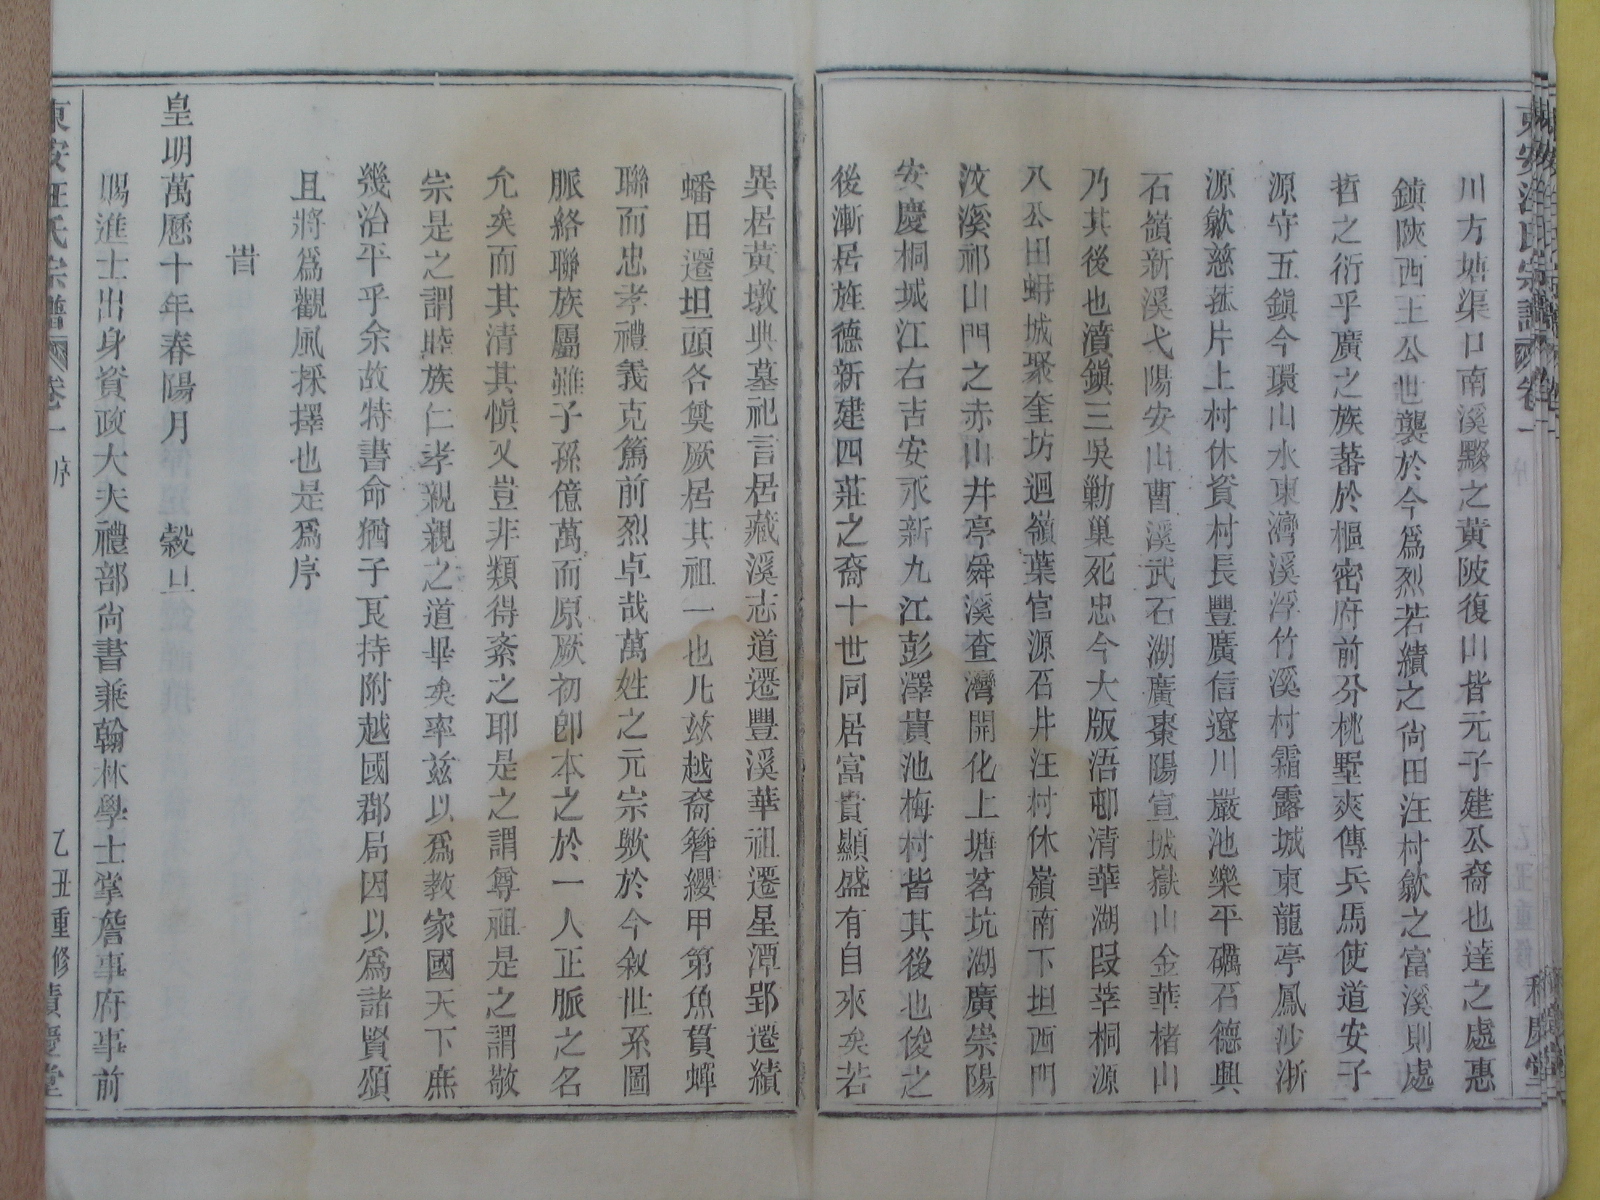 川方塘渠口南溪黟之黄陂復山皆元子建公裔也達之處惠
鎮陝西王公世襲於今爲烈若績之尙田汪村歙之富溪則處
哲之衍乎廣之族蕃於樞密府前分桃墅爽傳兵馬使道安子
源守五鎭今環山水東灣溪浮竹溪村霜露城東龍亭鳳沙浙
源歙慈菰片上村休資村長豐廣信遼川嚴池樂平礪石德興
石嶺新溪弋陽安山曹溪武石湖廣棗陽宣城嶽山金華楮山
乃其後也濆鎭三吳勦巢死忠今大版浯邨清華湖段莘桐源
八公田蚺城聚奎坊迴嶺葉官源石井汪村休嶺南下坦西門
汶溪祁山門之赤山井亭舜溪查灣開化上塘茗坑湖廣崇陽
安慶桐城江右吉安永新九江彭澤貴池梅村皆其後也俊之
後漸居旌德新建四莊之裔十世同居富貴顯盛有自來矣若
異居黃墩典墓祀言居藏溪志道遷豐溪華祖遷星潭郢遷績
蟠田遷坦頭各奠厥居其祖一也凡玆越裔簪纓甲第魚貫蟬
聯而忠孝禮義克篤前烈卓哉萬姓之元宗歟於今敘世系圖
脈絡聯族屬雖子孫億萬而原厥初卽本之於一人正脈之名
允矣而其清其愼又豈非類得紊之耶是之謂尊祖是之謂敬
宗是之謂睦族仁孝親親之道畢矣率兹以爲教家國天下庶
幾治平乎余故特書命猶子良持附越國郡局因以爲諸賢頌
且將爲觀風採擇也是爲序
旹
皇明萬曆十年春陽月 穀旦
賜進士出身資政大夫禮部尙書兼翰林學士掌詹事府事前
東安汪氏宗譜 卷一 序 乙丑重修 積慶堂